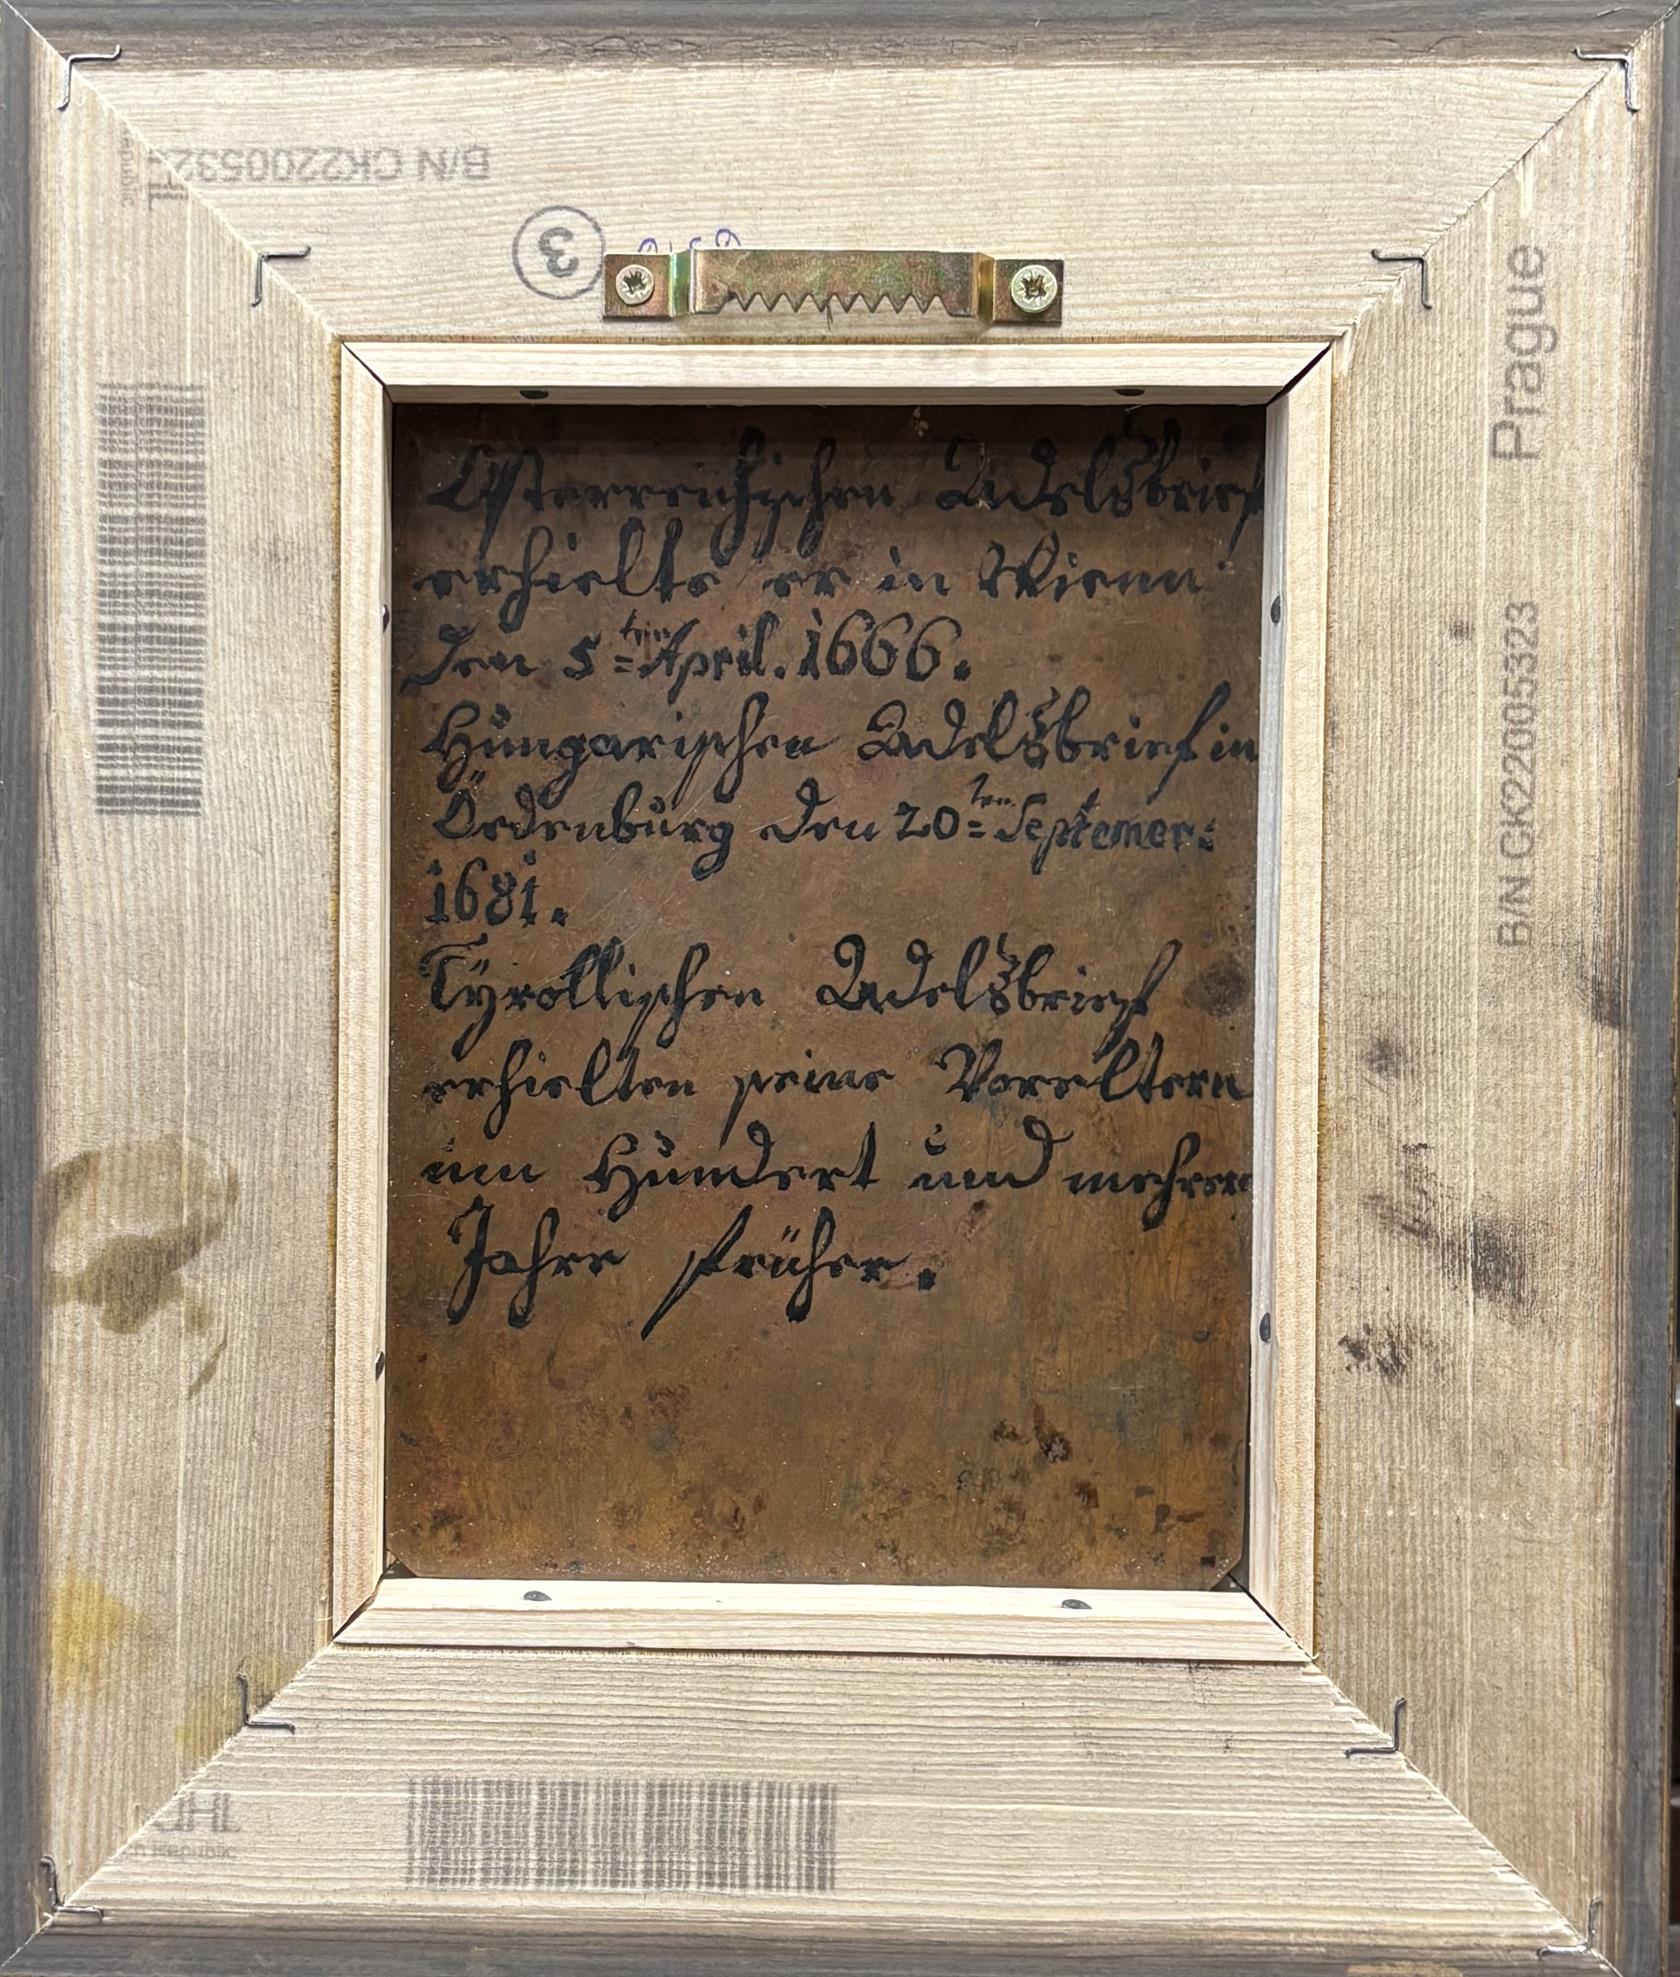 B/N CK22005323
3
Prague
B/N CK22005323
Österreichischen Adelsbrief
erhielte er in Wienn
den 5ten April. 1666.
Hungarischen Adelsbrief in
Ödenburg den 20ten Septemer:
1681.
Tyrollischen Adelsbrief
erhielten seine Voreltern
um Hundert und mehrere
Jahre früher.